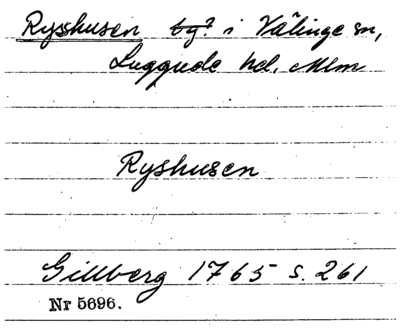 Rysshusen by? i Välinge sn,
Luggude hd, Mlm
Ryshusen
Gillberg 1765 s. 261
Nr 5696.